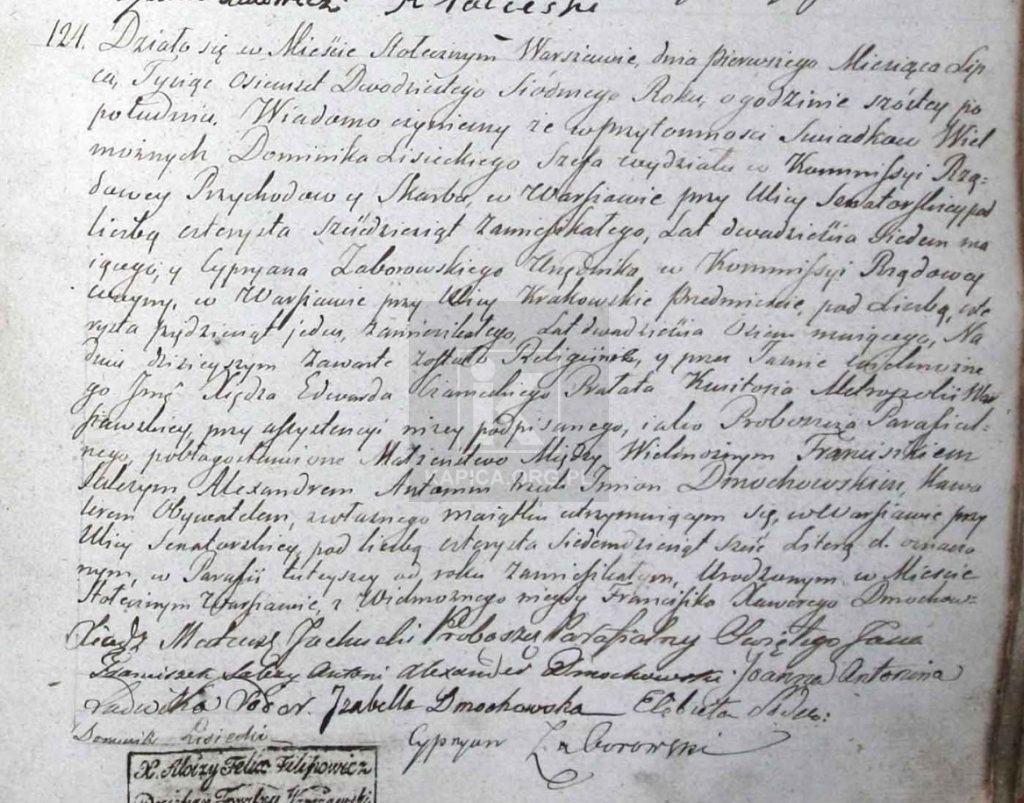 124. Działo się w Mieście Stołecznym Warszawie, dnia pierwszego Miesiąca Lip
ca, Tysiąc Osiemset Dwudziestego Siódmego Roku, o godzinie szóstey po
południu. Wiadomo czyniemy że w przytomności Swiadków Wiel
możnych Dominika Lisieckiego Szefa wydziału w Kommissyi Rzą-
dowey Przychodow y Skarbu, w Warszawie przy Ulicy Senatorskiey pod
liczbą czterysta sześdziesiąt zamieszkałego, Lat dwadzieścia siedem ma
iącego, y Cypryana Zaborowskiego Urzędnika, w Kommissyi Rządowey
Woyny, w Warszawie przy Ulicy Krakowskie Przedmieście, pod Liczbą, czte
rysta jeden, zamieszkałego, Lat dwadzieścia Osiem maiącego, Na
dniu dzisieyszym zawarte zostało Religiinie, y przez Jaśnie Wielmożne
go Jmć Xiędza Edwarda Czarneckiego Prałata Kustosza Metropolii War
szawskiey, przy assystencyi niżey podpisanego, iako Proboszcza Parafial-
nego, pobłogosławione Małżeństwo Między Wielmożnym Franciszkiem
Salezym Alexandrem Antonim trzech Jmion Dmochowskim, Kawa
lerem Obywatelem, z własnego maiątku utrzymuiącym się, w Warszawie przy
Ulicy Senatorskiey, pod liczbą czterysta siedemdziesiąt sześć Literą d. oznaczo
nym, w Parafii tuteyszey od roku zamieszkałym, Urodzonym w Mieście
Stołecznym Warszawie, z Wielmożnego niegdy Franciszka Xawerego Dmochow-
Xiądz Mateusz Jachucki Proboszcz Parafialny Świętego Jana
Franciszek Salezy Antoni Alexander Dmochowski Joanna Antonina
Ludwika Izabella Dmochowska Elżbieta
Dominik Lisiecki Cypryan Zaborowski
X. Aloizy Felix Filipowicz
KAPICA.ORG.PL